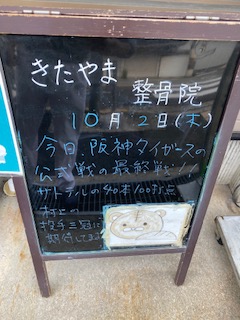 きたやま
整骨院
10月2日(木)
今日阪神タイガースの
公式戦の最終戦!!
サトテルの40本100打点
村上の
投手三冠に
期待してます